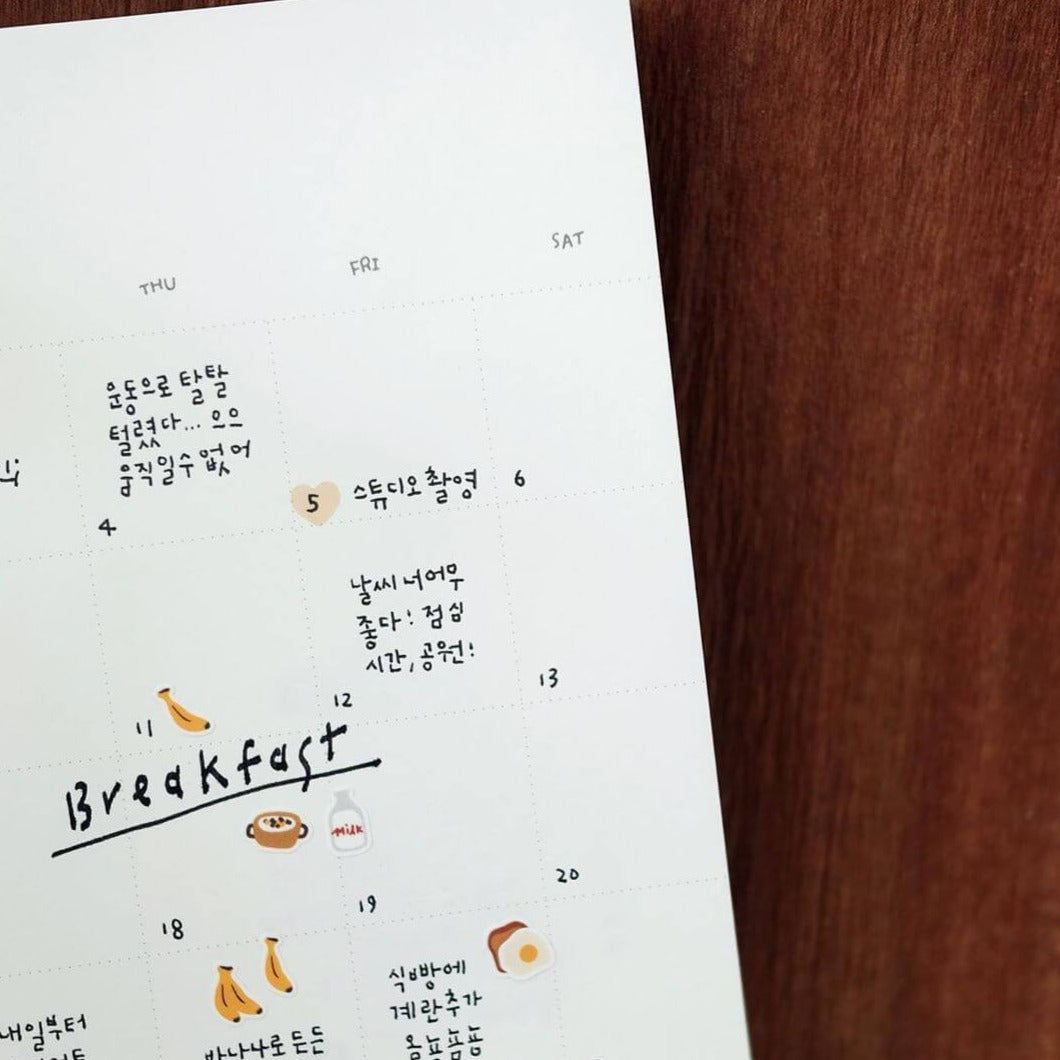 THU
FRI
SAT
운동으로 탈탈
털렸다... 으으
움직일수 없어
4
5
스튜디오 촬영
6
날씨 너어무
좋다! 점심
시간, 공원!
11
12
13
Breakfast
Milk
18
19
20
식빵에
계란추가
내일부터
바나나로 든든
욤뇸뇸뇸